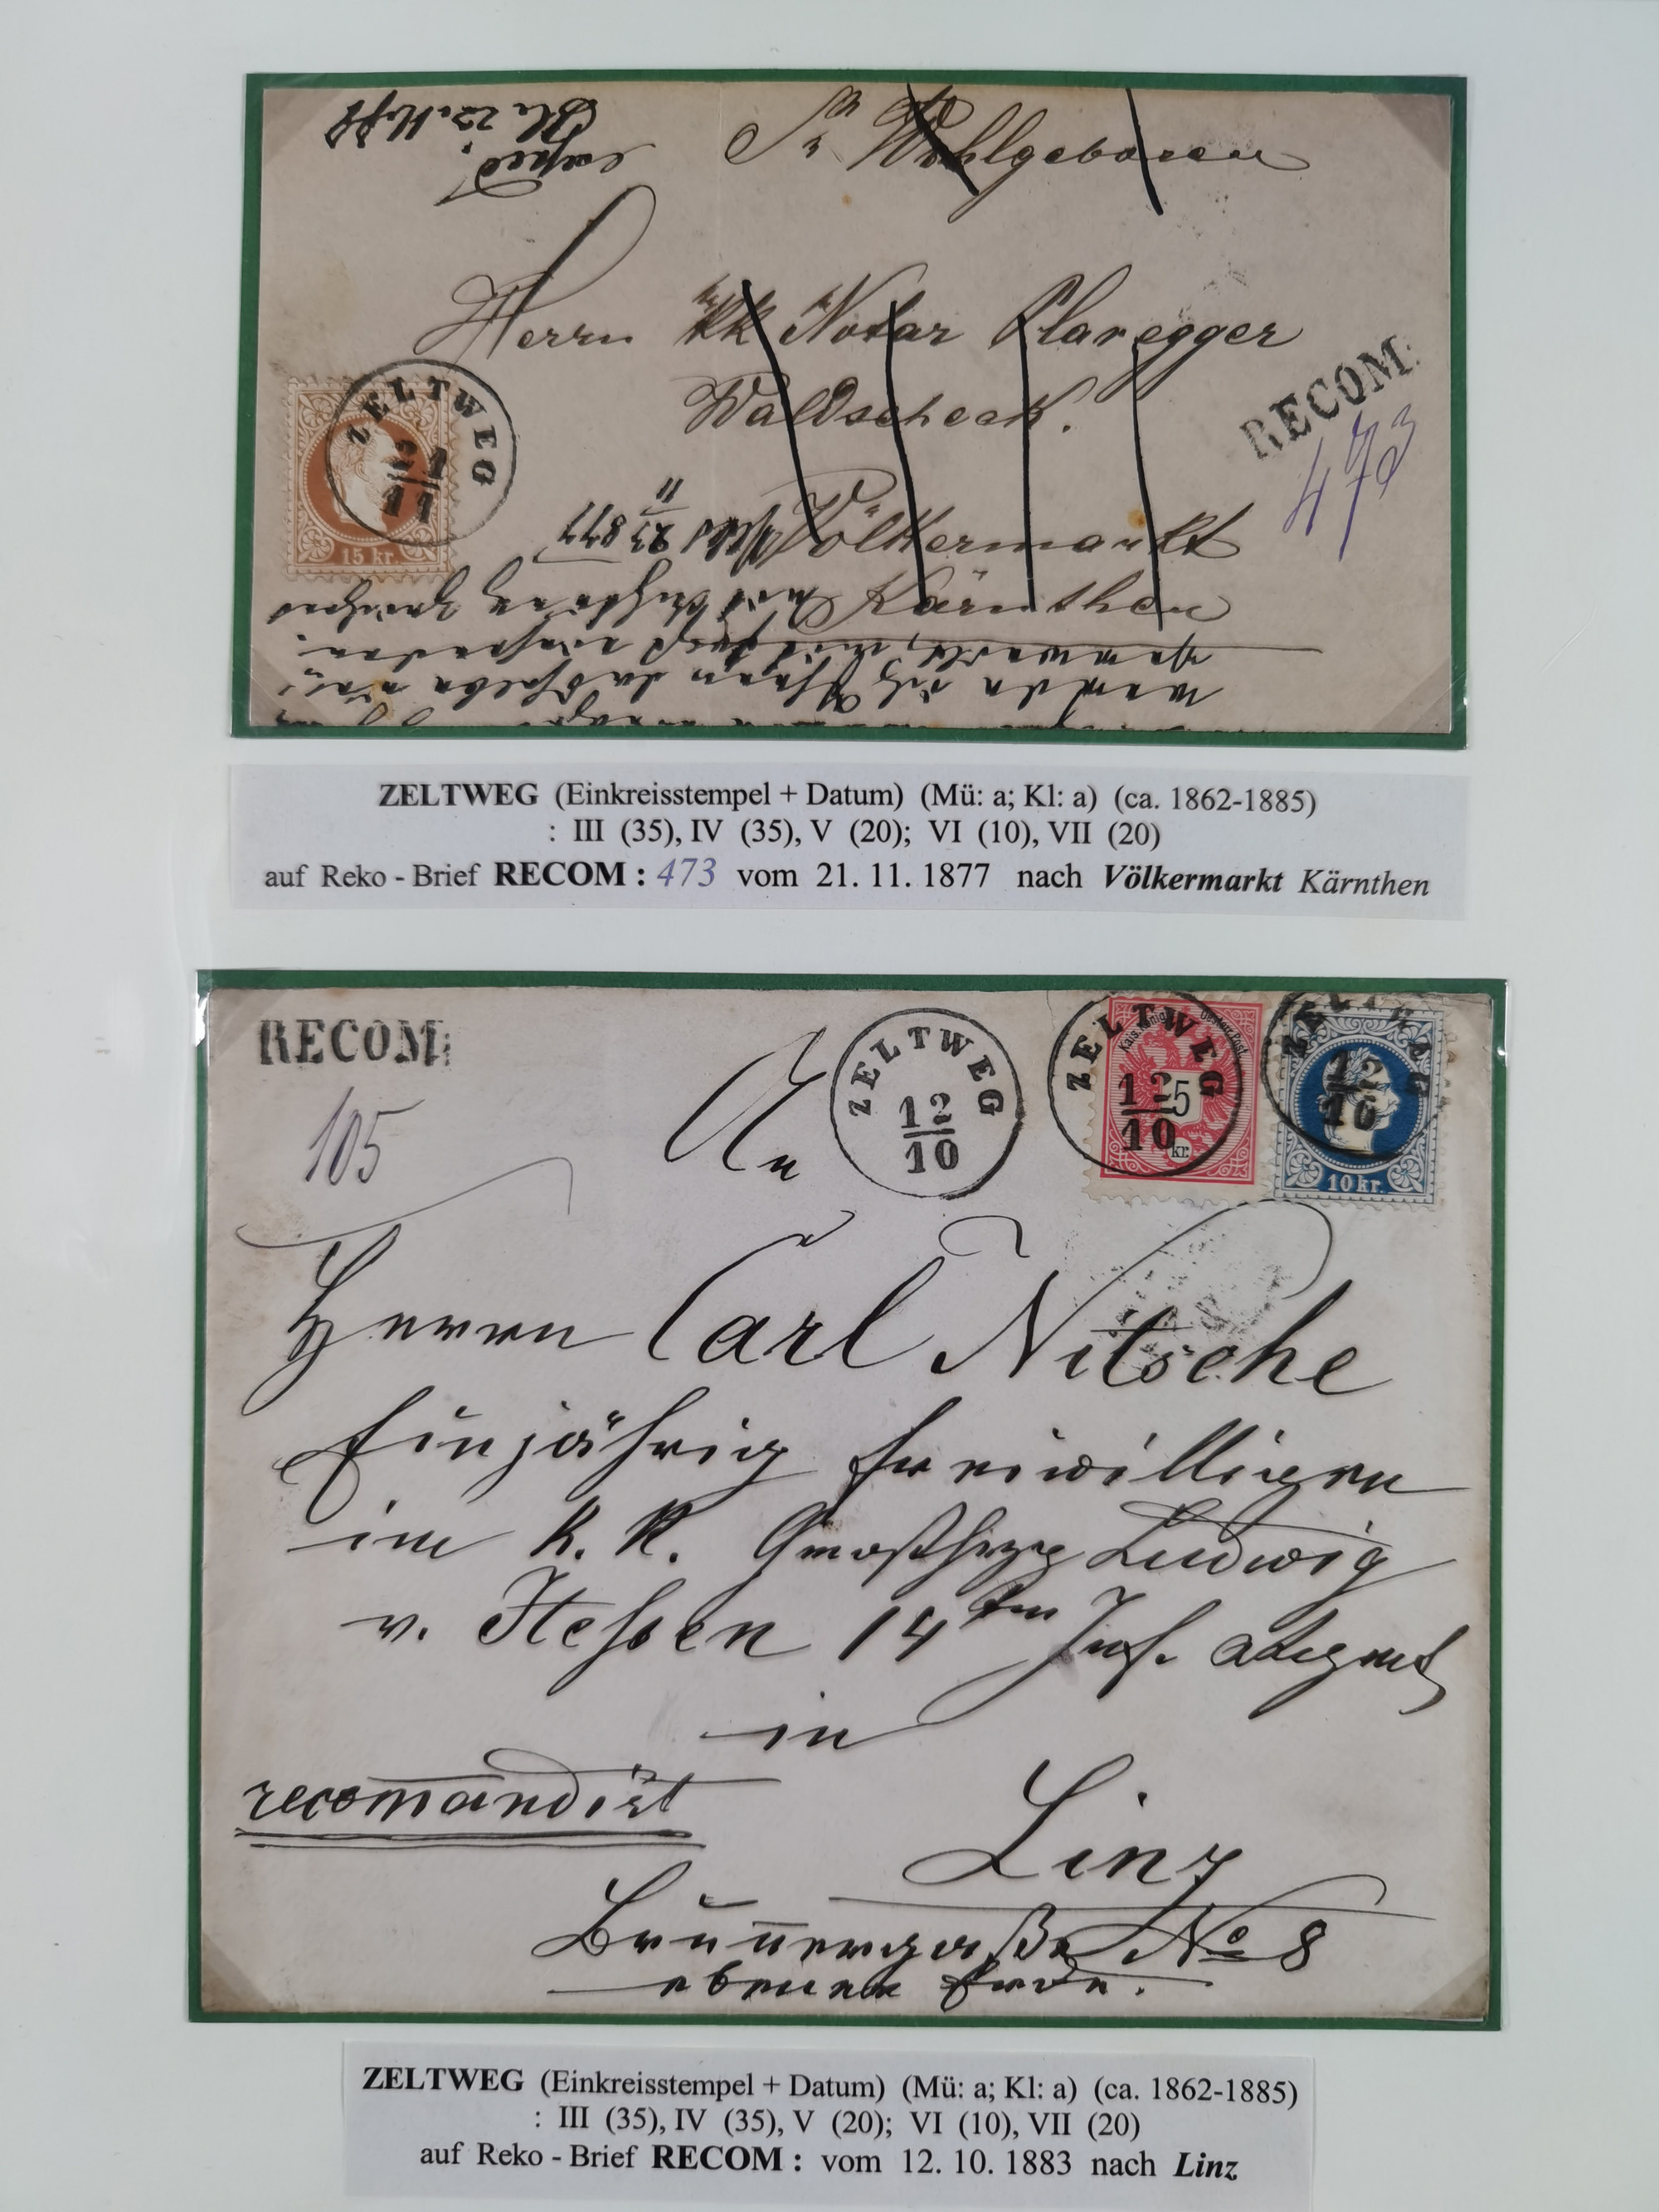 Sr Wohlgeboren
Herrn kk Notar Plaregger
Waldscheck.
Völkermarkt
Kärnthen
RECOM:
473
ZELTWEG
21
11
15 kr.
23 877
11
ZELTWEG (Einkreisstempel + Datum) (Mü: a; Kl: a) (ca. 1862-1885)
: III (35), IV (35), V (20); VI (10), VII (20)
auf Reko - Brief RECOM : 473 vom 21. 11. 1877 nach Völkermarkt Kärnthen
RECOM:
105
ZELTWEG
12
10
ZELTWEG
12
10
Kais. Königl. Oesterr. Post.
5
kr.
ZELTWEG
12
10
10 kr.
An
Herrn Carl Nitsche
Einjährig freiwilligen
im K. K. Großherzg Ludwig
v. Hessen 14ten Inf. Regmt
in
recomandirt
Linz
Brunnergaße No 8
ebener Erde.
ZELTWEG (Einkreisstempel + Datum) (Mü: a; Kl: a) (ca. 1862-1885)
: III (35), IV (35), V (20); VI (10), VII (20)
auf Reko - Brief RECOM : vom 12. 10. 1883 nach Linz